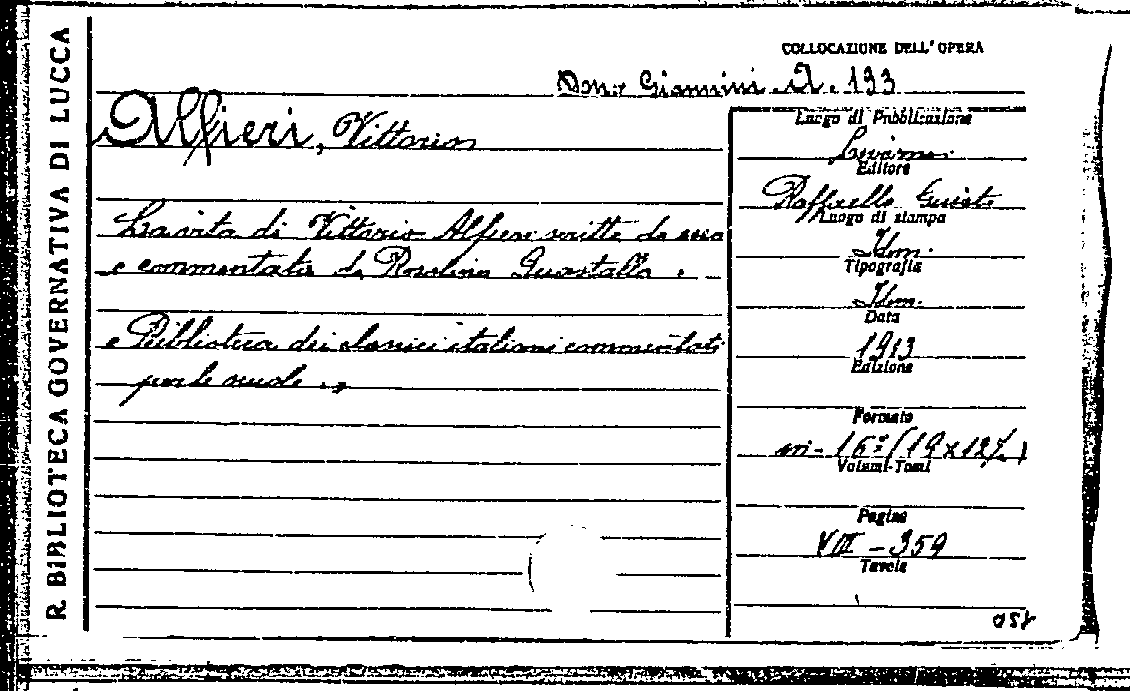 R. BIBLIOTECA GOVERNATIVA DI LUCCA
COLLOCAZIONE DELL'OPERA
Dono Giannini A. 133
Alfieri, Vittorio
La vita di Vittorio Alfieri scritta da esso
e commentata da Rosolino Guastalla.
"Biblioteca dei classici italiani commentati
per le scuole."
Luogo di Pubblicazione
Livorno
Editore
Raffaello Giusti
Luogo di stampa
Idem.
Tipografia
Idem.
Data
1913
Edizione
Formato
in-16º (19x12½)
Volumi-Tomi
Pagine
VIII-359
Tavole